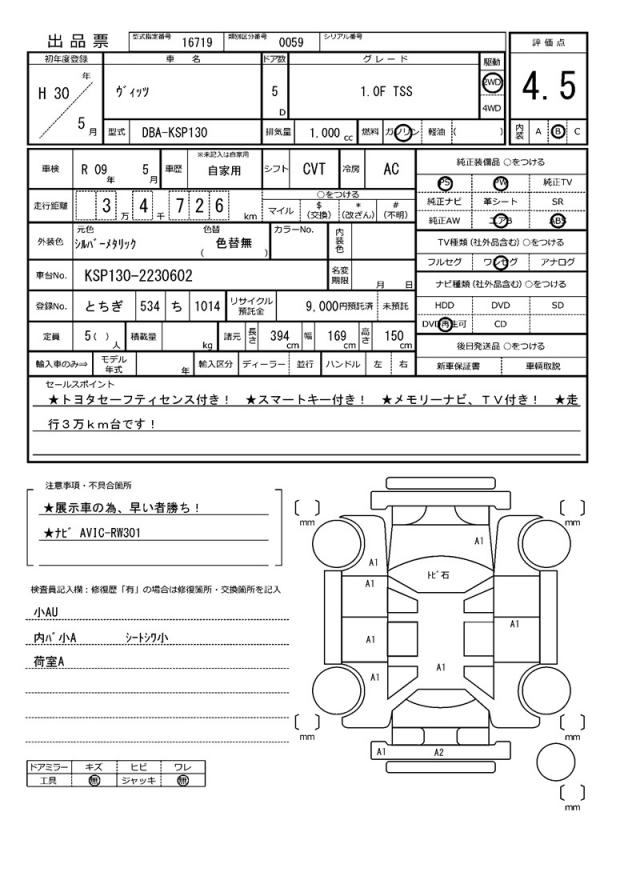 出品票 型式指定番号 16719 類別区分番号 0059 シリアル番号
評価点
4.5
初年度登録 車名 ドア数 グレード 駆動
H 30 年 5 月 ヴィッツ 5 D 1.0F TSS 2WD 4WD
型式 DBA-KSP130 排気量 1.000 cc 燃料 ガソリン 軽油 ( )
内装 A B C
車検 R 09 年 5 月 車歴 ※未記入は自家用 自家用 シフト CVT 冷房 AC
走行距離 3 万 4 千 7 2 6 km
○をつける
マイル $ (交換) * (改ざん) # (不明)
外装色 元色 シルバーメタリック 色替 ( 色替無 ) カラーNo. 内装色
車台No. KSP130-2230602 名変期限 月 日
登録No. とちぎ 534 ち 1014 リサイクル預託金 9,000円預託済 未預託
定員 5( ) 人 積載量 kg 諸元 長さ 394 cm 幅 169 cm 高さ 150 cm
輸入車のみ⇒ モデル年式 年 輸入区分 ディーラー 並行 ハンドル 左 右
純正装備品 ○をつける
PS PW 純正TV
純正ナビ 革シート SR
純正AW エアB ABS
TV種類 (社外品含む) ○をつける
フルセグ ワンセグ アナログ
ナビ種類 (社外品含む) ○をつける
HDD DVD SD
DVD再生可 CD
後日発送品 ○をつける
新車保証書 車輌取説
セールスポイント
★トヨタセーフティセンス付き! ★スマートキー付き! ★メモリーナビ、TV付き! ★走
行3万km台です!
注意事項・不具合箇所
★展示車の為、早い者勝ち!
★ナビ AVIC-RW301
検査員記入欄:修復歴「有」の場合は修復箇所・交換箇所を記入
小AU
内バ小A シートシワ小
荷室A
ドアミラー キズ ヒビ ワレ
工具 無 ジャッキ 無
[ ] mm
[ ] mm
A1
A1 トビ石
A1
A1
A1
A1 A1
[ ] mm
[ ] mm
A1 A2
[ ] mm